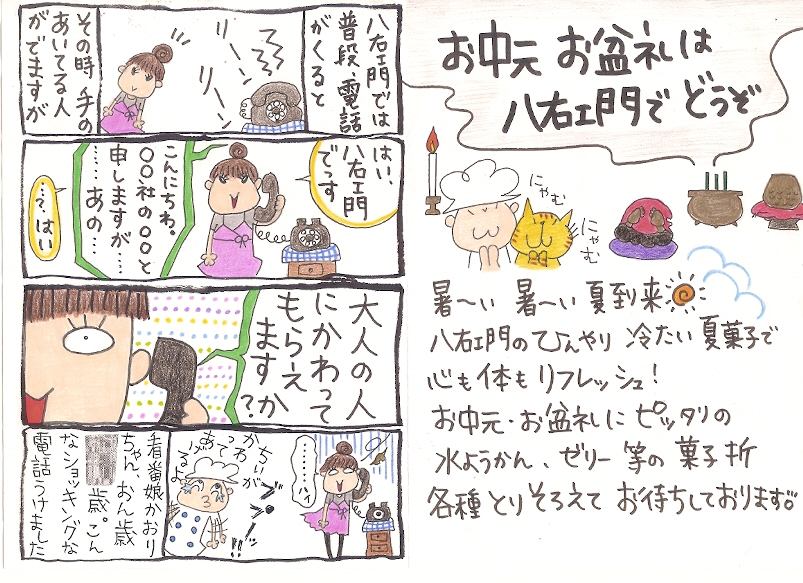 八右ェ門では
普段、電話
がくると
リーン
リーン
その時 手の
あいてる人
がでますが
はい、
八右ェ門
でっす
こんにちわ。
〇〇社の〇〇と
申しますが……
……あの…
…?はい
大人の人
にかわって
もらえ
ますか?
……ハイ
ちぃが
かわって
あげるよ
ブブー!!
看番娘かおり
ちゃん、おん歳
歳。こん
なショッキングな
電話うけました
お中元 お盆礼は
八右ェ門で どうぞ
にゃむ
にゃむ
暑〜い 暑〜い 夏到来
八右ェ門の ひんやり 冷たい 夏菓子で
心も 体も リフレッシュ!
お中元・お盆礼に ピッタリの
水ようかん、ゼリー 等の 菓子折
各種 とりそろえて お待ちしております。